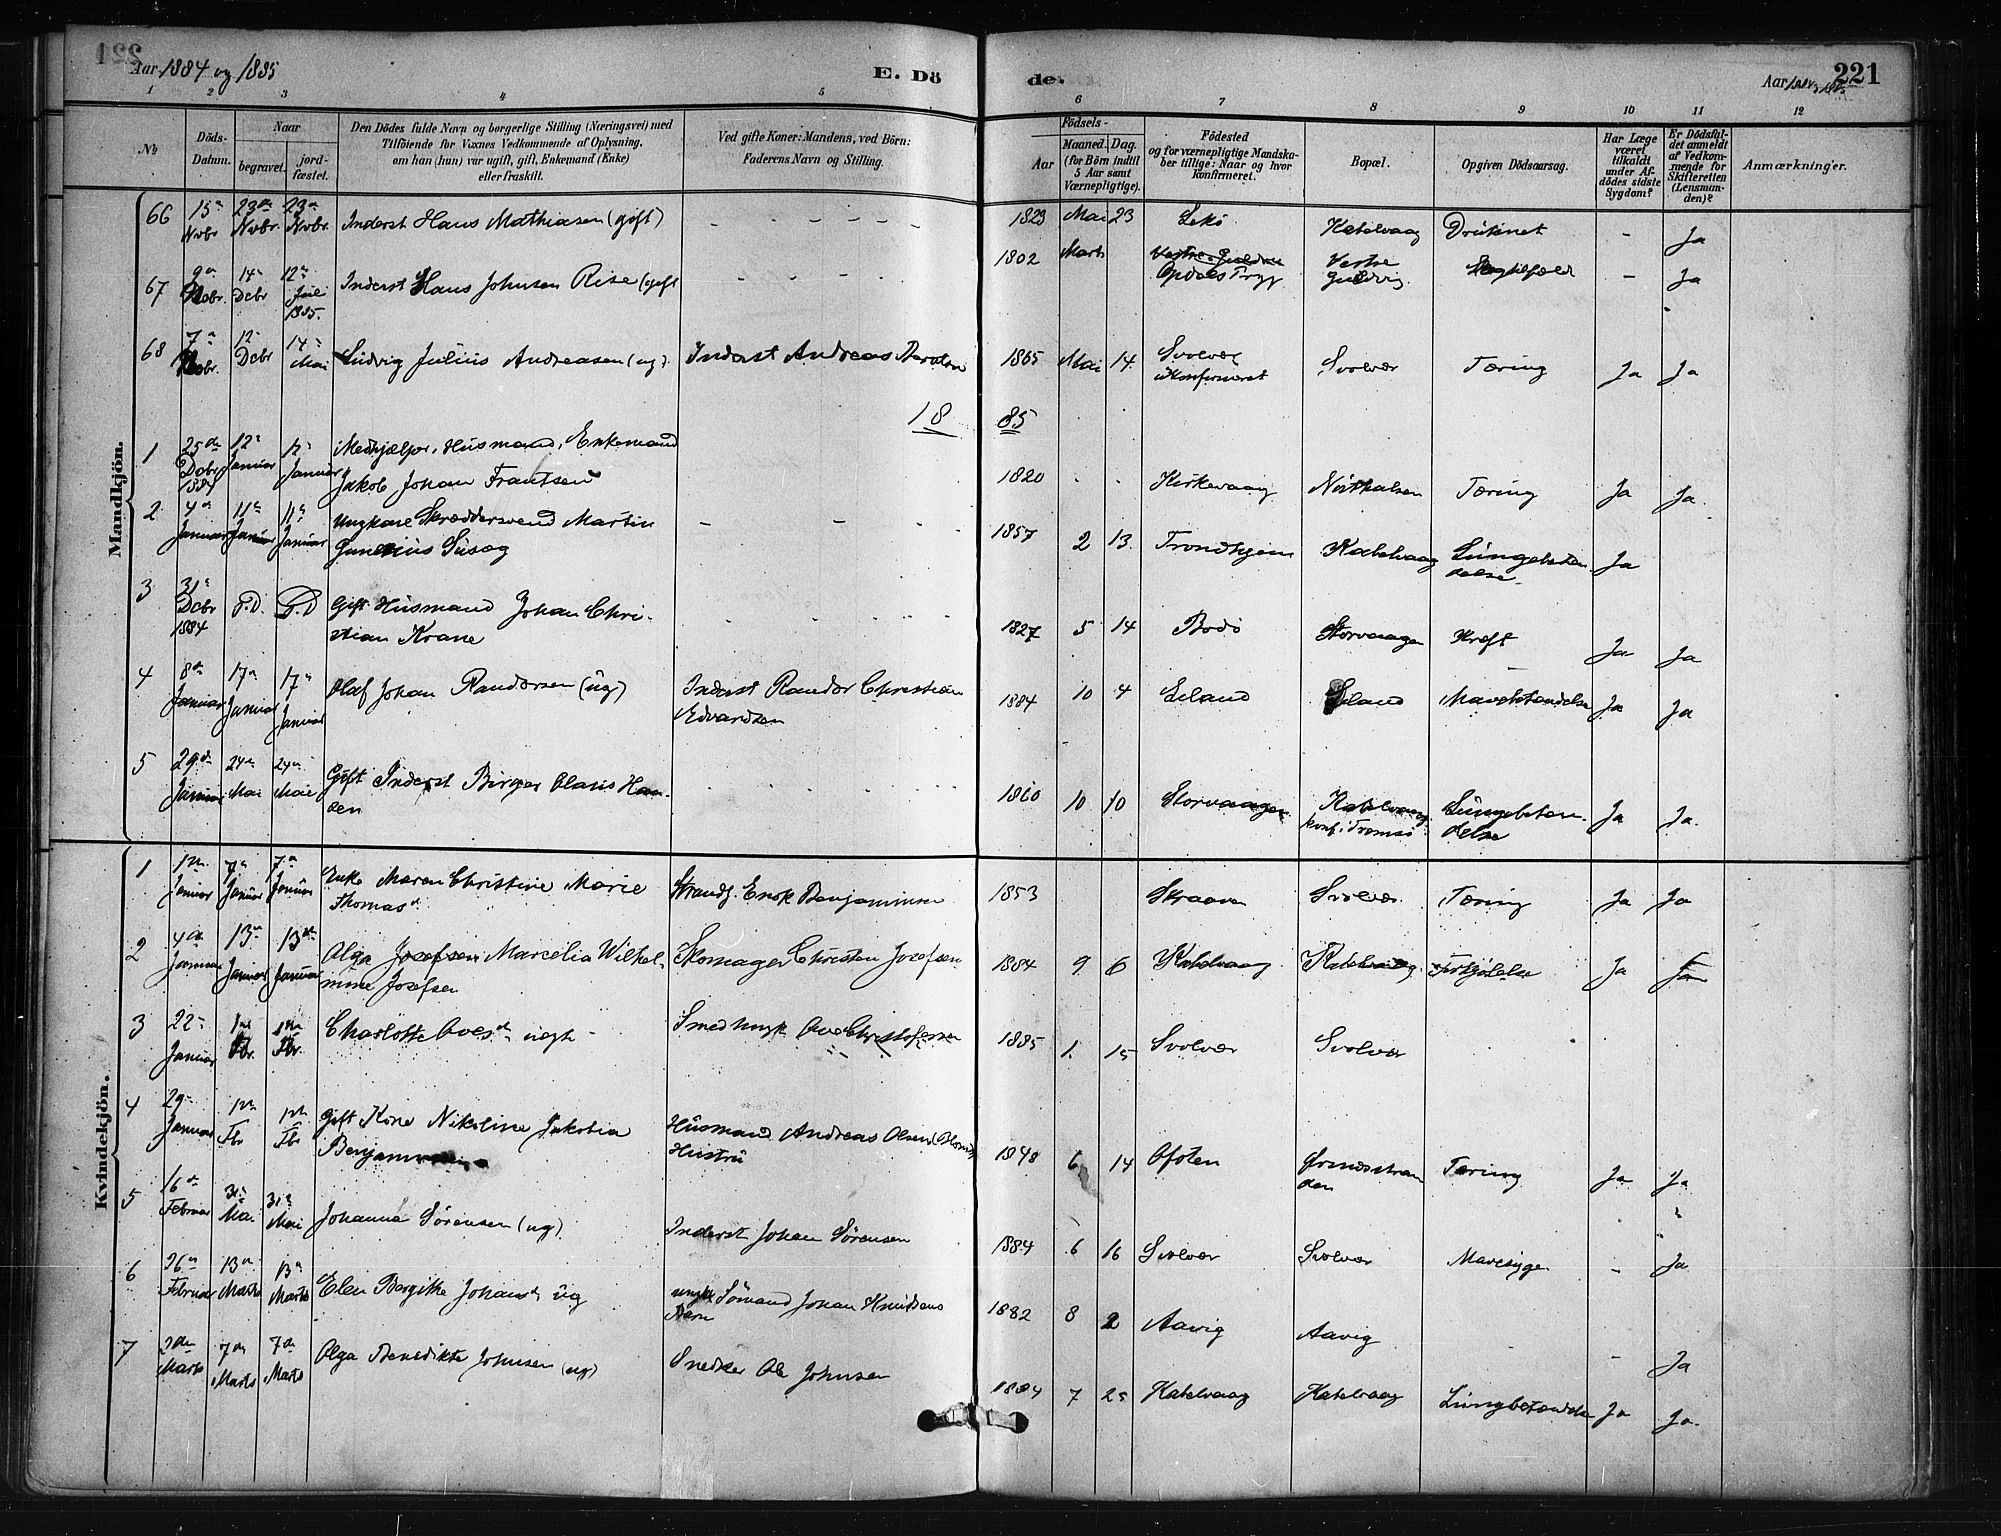 221
Aar 1884 og 1885
E. Dö
de.
Aar
221
1 2 3 4 5
6 7 8 9 10 11 12
No
Döds-
Datum.
Naar
begravet.
jord-
fæstet.
Den Dödes fulde Navn og borgerlige Stilling (Næringsvei) med
Tilföiende for Voxnes Vedkommende af Oplysning,
om han (hun) var ugift, gift, Enkemand (Enke)
eller fraskilt.
Ved gifte Koner: Mandens, ved Börn:
Faderens Navn og Stilling.
Födsels-
Aar
Maaned.
(for Börn indtil
5 Aar samt
Værnepligtige).
Dag.
Födested
og for værnepligtige Mandska-
ber tillige: Naar og hvor
konfirmeret.
Bopæl.
Opgiven Dödsaarsag.
Har Læge
været
tilkaldt
under Af-
dödes sidste
Sygdom?
Er Dödsfal-
det anmeldt
af Vedkom-
mende for
Skifteretten
(Lensman-
den)?
Anmærkninger.
Mandkjön.
66 15de Nvbr. 23de Nvbr. 23de Nvbr. Inderst Hans Mathiasen (gift) 1823 Mai 23 Lekö Kabelvaag Druknet - Ja
67 9de Debr. 14de Debr 12te Juli 1885. Inderst Hans Johnsen Rise (gift 1802 Marts Opdals Vestre - Ja
68 7de Debr. 12 Debr 14de Mai Ludvig Julius Andreasen (ug). Inderst Andreas 1865 Mai 14. Svolvær ukonfirmeret Svolvær Tæring Ja Ja
18 85
1 25de Debr 1884 12te Januar 12te Januar Medhjælper, Husmand, Enkemand
Jakob Johan Frantsen 1820 Kirkevaag Tæring Ja Ja.
2 4de Januar 11te Januar 11te Januar Ungkarl Skræddersvend Martin
Susæg 1857 2 13. Trondhjem Kabelvaag Lungebetæn-
delse Ja
3 31te Debr 1884 T.D. T.D Gift Husmand Johan Chri-
stian Krane 1827 5 14 Bodö Storvaagen Kræft Ja Ja
4 8de Januar 17de Januar 17de Januar Olaf Johan Randorsen (ug) Inderst Randor Christian
Edvardsen 1884 10 4 Eiland Eiland Mavebetændelse Ja Ja
5 29de Januar 24de Mai 24de Mai Gift Inderst Birger Olaus Han-
sen 1860 10 10 Storvaagen Kabelvaag
konf. i Tromsö Lungebetæn-
delse Ja Ja.
Kvindekjön.
1 1ste Januar 7de Januar 7de Januar Enke Maren Christine Marie
Thomasd. Strands. Enok Benjaminsen 1853 Skraaven Svolvær. Tæring Ja Ja
2 4de Januar 13de Januar 13de Januar Olga Josefsen Marcelia Wilhel-
mine Josefsen Skomager Christen Josefsen 1884 9 6 Kabelvaag Kabelvaag. Forkjølelse Ja Ja
3 22 Januar 1ste Fbr. 1ste Fbr. Charlotte Ovesd. uægte Smed Ungk Ove Christofersen 1885 1. 15 Svolvær Svolvær
4 29 Januar 1ste Fbr 1ste Fbr Gift Kone Nikoline Jakobia
Husmand Andreas Olsen
Hustru 1848 6 14 Ofoten Ørsnesstran
den Tæring Ja Ja
5 16de Februar 31te Mai 31te Mai Johanna Sørensen (ug). Inderst Johan Sørensen 1884 6 16 Svolvær Svolvær Mavesyge. - Ja
6 26de Februar 13de Marts 13de Marts Elen Bergitte Johansd. ug ungk Sömand Johan Knudsens
Barn 1882 8 2 Aavig Aavig - Ja
7 2den Marts 7de Marts 7de Marts Olga Benedikte Johnsen (ug) Snedker Ole Johnsen 1884 7 25 Kabelvaag Kabelvaag Lungebetændelse Ja Ja.